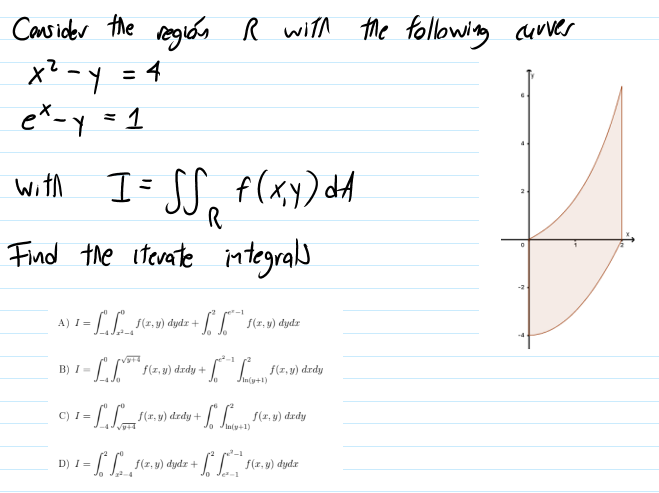 Consider the región R with the following curves
x² - y = 4
e^x - y = 1
with I = ∬_R f(x,y) dA
Find the iterate integrals
A) I = ∫_{-4}^{0} ∫_{x²-4}^{0} f(x, y) dydx + ∫_{0}^{2} ∫_{0}^{e^x-1} f(x, y) dydx
B) I = ∫_{-4}^{0} ∫_{0}^{√(y+4)} f(x, y) dxdy + ∫_{0}^{e²-1} ∫_{ln(y+1)}^{2} f(x, y) dxdy
C) I = ∫_{-4}^{0} ∫_{√(y+4)}^{0} f(x, y) dxdy + ∫_{0}^{6} ∫_{ln(y+1)}^{2} f(x, y) dxdy
D) I = ∫_{0}^{2} ∫_{x²-4}^{0} f(x, y) dydx + ∫_{0}^{2} ∫_{e^x-1}^{e²-1} f(x, y) dydx
y
6
4
2
x
0 1 2
-2
-4